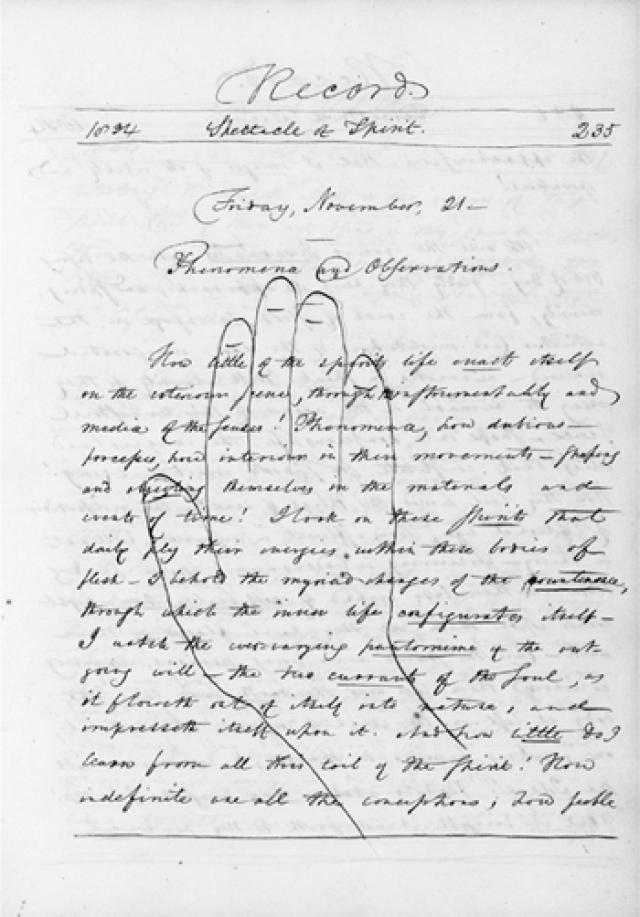 Record
1834 Spectacle of Spirit. 235
Friday, November, 21—
Phenomena and Observations.
How little of the spirit's life enact itself
on the exterior scene, through the instrumentality and
media of the senses! Phenomena, how dubious—
processes, how interiour in their movements — shaping
and objecting themselves in the materials and
events of time! I look on these spirits that
daily ply their energies within these bodies of
flesh — I behold the myriad changes of the countenance,
through which the inner life configurates itself—
I watch the ever-varying pantomime of the out-
going will — the currant of the Soul, as
it floweth out of itself into nature, and
impresseth itself upon it. And how little do I
learn from all this coil of the Spirit! How
indefinite are all the conceptions; how feeble